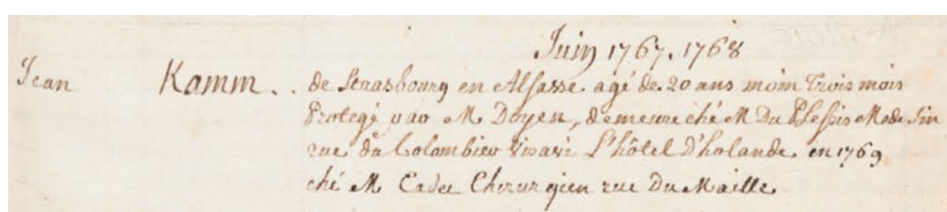 Juin 1767. 1768
Jean Kamm.. de Strasbourg en Alsasse agé de 20 ans moin Trois mois
Protegé par M Doyen, demeure ché M Du Plessis Medesin
rue du Colombier visavi L'hôtel d'holande. en 1769
ché M Cadet Chirurgien rue Du Maille.